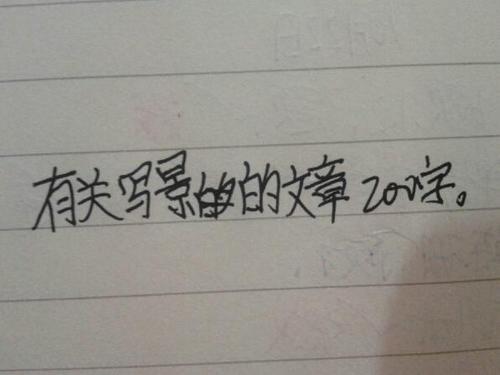 有关写景的文章200字。